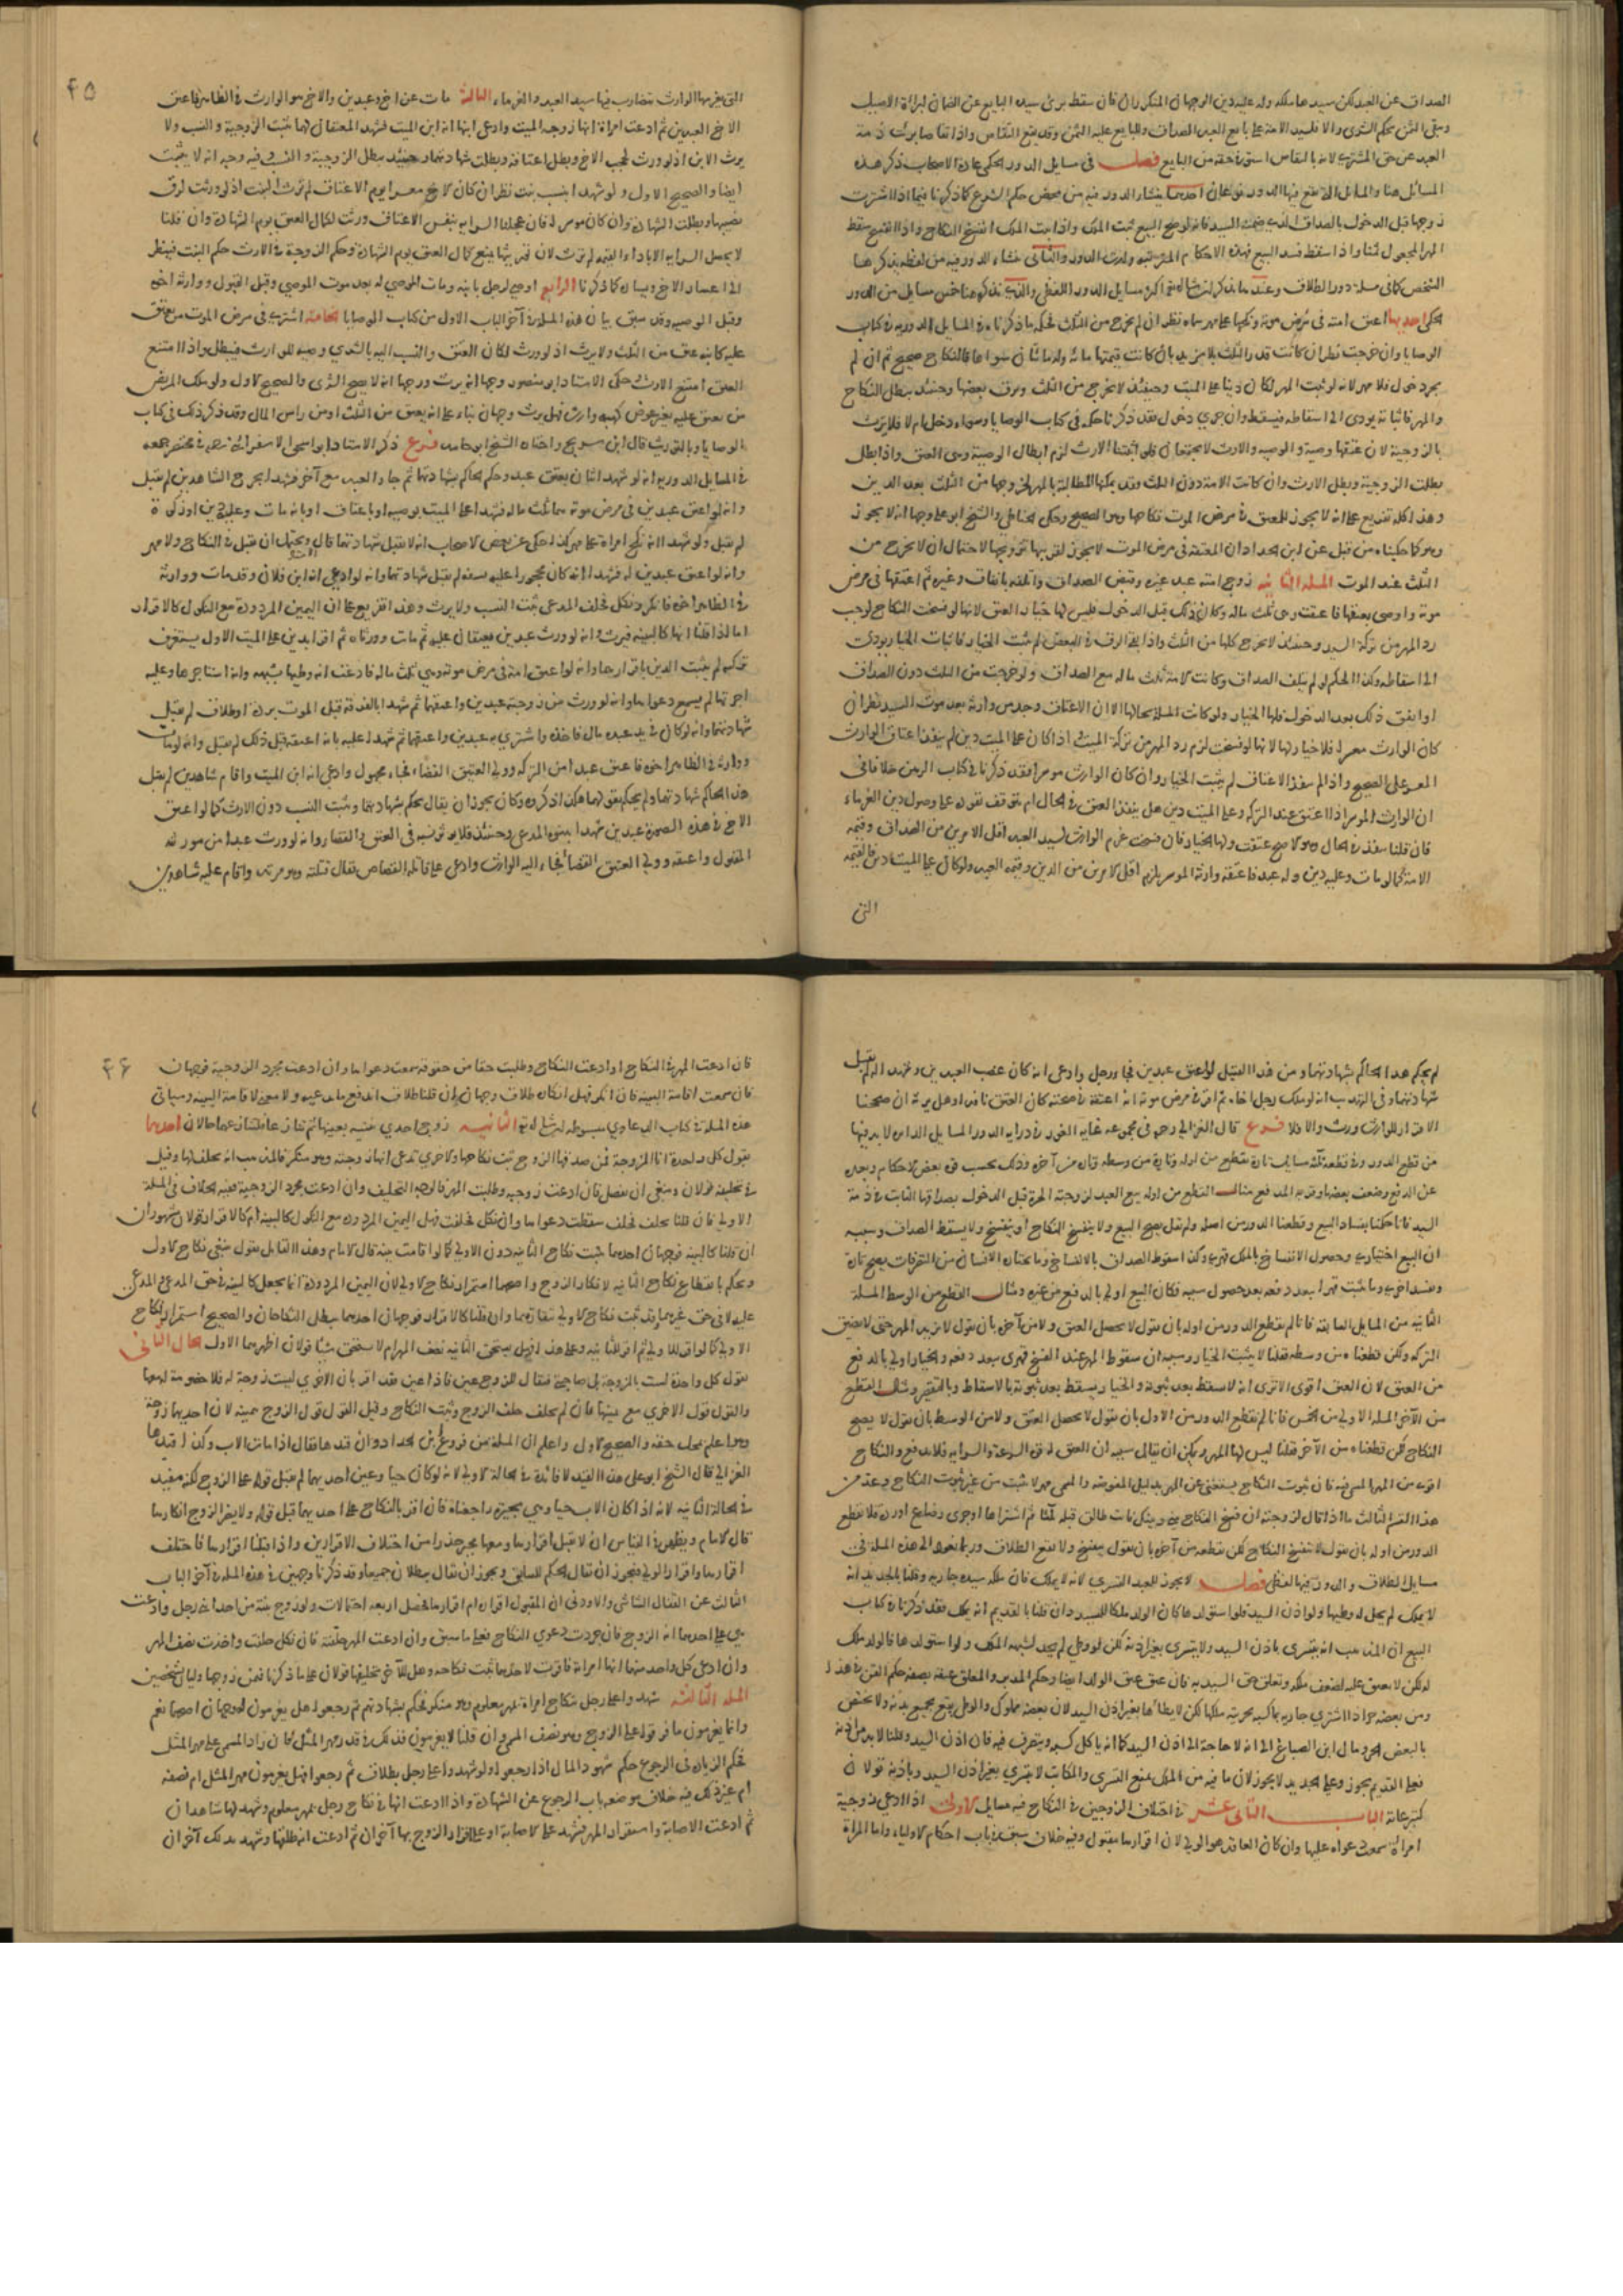 الصداق عن العبد لكن سيدها ملكه وله عليه دين الوجهان المذكوران فان سقط برئ سيد البايع عن الضمان لبراة الاصيل
وبقى الثمن بحكم الشرى والا فلسيد الامة على بايع العبد الصداق وللبايع عليه الثمن وقد يقع التقاص واذا تقاصا برئت ذمة
العبد عن حق المشترى لانه بالتقاص استوفى حقه من البايع فصل فى مسايل الدور الحكمى عادة الاصحاب ذكر هذه
المسائل هنا والمسائل التى يقع فيها الدور نوعان احدهما ينشاء الدور فيه من محض حكم الشرع كما ذكرنا فيما اذا اشترت
زوجها قبل الدخول بالصداق الذى ضمنه السيد فانه لو صح البيع ثبت الملك واذا ثبت الملك انفسخ النكاح واذا انفسخ سقط
المهر المجعول ثمنا واذا سقط فسد البيع فهذه الاحكام المترتبة ولدت الدور والثانى منشاء الدور فيه من لفظة يذكرها
الشخص كما فى مسلة دور الطلاق وعند ما يذكر ان شاء الله تعالى اكثر مسايل الدور اللفظى والذى نذكره هنا خمس مسايل من الدور
الحكمى احديها اعتق امته فى مرض موته ونكحها على مهر سماه نظر ان لم تخرج من الثلث فحكمه ما ذكرناه فى المسايل الدورية فى كتاب
الوصايا وان خرجت نظر ان كانت قدر الثلث بلا مزيد بان كانت قيمتها مائة وله مائتان سواها فالنكاح صحيح ثم ان لم
يجر دخول فلا مهر لانه لو ثبت المهر لكان دينا على الميت وحينئذ لا تخرج من الثلث ويرق بعضها وحينئذ يبطل النكاح
والمهر فاثباته يودى الى اسقاطه فيسقط وان جرى دخول فقد ذكرنا حكمه فى كتاب الوصايا وسواء دخل ام لا فلا يرث
بالزوجية لان عتقها وصية والوصية والارث لا يجتمعان فلو اثبتنا الارث لزم ابطال الوصية وهى العتق واذا بطل
بطلت الزوجية وبطل الارث وان كانت الامة دون الثلث وقد يمكنها المطالبة بالمهر لخروجها من الثلث بعد الدين
وهذا كله تفريع على انه لا يجوز للمعتق فى مرض الموت نكاحها وهو الصحيح وحكى الحناطى والشيخ ابو على وجها انه لا يجوز
الثلث عند الموت المسلة الثانية زوج امته عبد غيره وقبض الصداق واتلفه بانفاق وغيره ثم اعتقها فى مرض
موته او اوصى بعتقها فاعتقت وهى ثلث ماله وكان ذلك قبل الدخول فليس لها خيار العتق لانها لو فسخت النكاح لوجب
رد المهر من تركة السيد وحينئذ لا تخرج كلها من الثلث واذا بقى الرق فى البعض لم يثبت الخيار فاثبات الخيار يودى
الى اسقاطه وكذا الحكم لو لم يتلف الصداق وكانت الامة ثلث ماله مع الصداق ولو خرجت من الثلث دون الصداق
او اتفق ذلك بعد الدخول فلها الخيار ولو كانت المسلة بحالها الا ان الاعتاق وجد من وارثه بعد موت السيد نظر ان
كان الوارث معسرا فلا خيار لها لانها لو فسخت لزم رد المهر من تركة الميت واذا كان على الميت دين لم ينفذ اعتاق الوارث
المعسر على الصحيح واذا لم ينفذ الاعتاق لم يثبت الخيار وان كان الوارث موسرا فقد ذكرنا فى كتاب الرهن خلافا فى
ان الوارث الموسر اذا اعتق عبد التركة وعلى الميت دين هل ينفذ العتق فى الحال ام يتوقف نفوذه على وصول دين الغرماء
فان قلنا ينفذ فى الحال وهو الاصح عتقت ولها الخيار فان فسخت غرم الوارث لسيد العبد اقل الامرين من الصداق وقيمة
الامة كما لو مات وعليه دين وله عبد فاعتقه وارثه الموسر يلزمه اقل الامرين من الدين وقيمة العبد ولو كان على الميت دين فالقيمة
التى
٤٥
التى يغرمها الوارث يتضارب فيها سيد العبد والغرماء الثالثة مات عن اخ وعبدين والاخ هو الوارث فى الظاهر فاعتق
الاخ العبدين ثم ادعت امراة انها زوجة الميت وادعى ابنها انه ابن الميت فشهد المعتقان لهما ثبتت الزوجية والنسب ولا
يرث الابن اذ لو ورث لحجب الاخ وبطل اعتاقه وبطلت شهادتهما وحينئذ يبطل الزوجية والنسب وفيه وجه انه لا يثبت
ايضا والصحيح الاول ولو شهدا بنسب بنت نظر ان كان الاخ معسرا يوم الاعتاق لم ترث البنت اذ لو ورثت لرق
نصيبها وبطلت الشهادة وان كان موسرا فان عجلنا السراية بنفس الاعتاق ورثت لكمال العتق يوم الشهادة وان قلنا
لا يحصل السراية الا باداء القيمة لم ترث لان توريثها يمنع كمال العتق يوم الشهادة وحكم الزوجة فى الارث حكم البنت فينظر
الى اعسار الاخ ويساره كما ذكرنا الرابع اوصى لرجل بابنه ومات الموصى له بعد موت الموصى وقبل القبول ووارثه اخوه
وقبل الوصية وقد سبق بيان هذه المسلة فى آخر الباب الاول من كتاب الوصايا الخامسة اشترى فى مرض الموت من يعتق
عليه كابنه عتق من الثلث ولا يرث اذ لو ورث لكان العتق والتسبب اليه بالشرى وصية للوارث فيبطل واذا امتنع
العتق امتنع الارث وحكى الاستاد ابو منصور وجها انه يرث ووجها انه لا يصح الشرى والصحيح الاول ولو ملك المريض
من يعتق عليه بغير عوض كهبة وارث فهل يرث وجهان بناء على انه يعتق من الثلث او من راس المال وقد ذكر ذلك فى كتاب
الوصايا وبالتوريث قال ابن سريج واختاره الشيخ ابو حامد فرع ذكر الاستاد ابو اسحق الاسفراينى رحمه فى مختصر جمعه
فى المسايل الدورية انه لو شهد اثنان بعتق عبد وحكم الحاكم بشهادتهما ثم جاء العبد مع آخر فشهدا بجرح الشاهدين لم يقبل
وانه لو اعتق عبدين فى مرض موته هما ثلث ماله فشهدا على الميت بوصية او باعتاق او بانه مات وعليه دين او زكوة
لم يقبل ولو شهدا انه نكح امراة على مهر كذا حكى عن بعض الاصحاب انه لا يقبل شهادتهما قال ويحتمل ان يقبل فى النكاح ولا مهر
وانه لو اعتق عبدين له فشهدا انه كان محجورا عليه بسفه لم يقبل شهادتهما وانه لو ادعى انه ابن فلان وقد مات ووارثه
فى الظاهر اخوه فانكر ونكل فحلف المدعى ثبت النسب ولا يرث وهذا تفريع على ان اليمين المردودة مع النكول كالاقرار
اما اذا قلنا انها كالبينة فيرث وانه لو ورث عبدين يعتقان عليه ثم مات وورثاه ثم اقرا بدين على الميت الاول يستغرق
تركته لم يثبت الدين باقرارهما وانه لو اعتق امة فى مرض موته وهى ثلث ماله فادعت انه وطيها بشبهة وانه استاجرها وعليه
اجرتها لم يسمع دعواها وانه لو ورث من زوجته عبدين واعتقهما ثم شهدا بالفرقة قبل الموت بردة او طلاق لم يقبل
شهادتهما وانه لو كان فى يد عبده مال فاخذه واشترى به عبدين واعتقهما ثم شهدا عليه بانه اعتقه قبل ذلك لم يقبل وانه لو مات
ووارثه فى الظاهر اخوه فاعتق عبدا من التركة وولى العتيق القضاء فجاء مجهول وادعى انه ابن الميت واقام شاهدين لم يقبل
هذا الحاكم شهادتهما ولم يحكم بقولهما هكذا ذكروه وكان يجوز ان يقال يحكم بشهادتهما ويثبت النسب دون الارث كما لو اعتق
الاخ فى هذه الصورة عبدين شهدا ببنوة المدعى وحينئذ فلا يوثر نسبه فى العتق والقضاء وانه لو ورث عبدا من مورثه
المقتول واعتقه وولى العتيق القضا فجاء اليه الوارث وادعى على قاتله القصاص فقال قتلته وهو مرتد واقام عليه شاهدين
لم يحكم هذا الحاكم بشهادتهما ومن هذا القبيل لو اعتق عبدين فجاء رجل وادعى انه كان غصب العبدين وشهدا له لم يقبل
شهادتهما وفى التهذيب انه لو ملك رجل اخاه ثم اقر فى مرض موته انه اعتقه فى صحته كان العتق نافذا وهل يرثه ان صححنا
الاقرار للوارث ورث والا فلا فرع قال الغزالى رحمه فى مجموعه غاية الغور فى دراية الدور المسايل الدايرة لا بد فيها
من قطع الدور وفى قطعه ثلثة مسالك تارة يقطع من اوله وتارة من وسطه وتارة من آخره وذلك بحسب قوة بعض الاحكام وبعده
عن الدفع وضعف بعضها وقربه الى الدفع مثال القطع من اوله بيع العبد لزوجته الحرة قبل الدخول بصداقها الثابت فى ذمة
السيد فانا حكمنا بفساد البيع وقطعنا الدور من اصله ولم نقل يصح البيع ولا ينفسخ النكاح او ينفسخ ولا يسقط الصداق وسببه
ان البيع اختيارى وحصول الانفساخ بالملك قهرى وكذا سقوط الصداق بالانفساخ وما يختاره الانسان من التصرفات يصح تارة
ويفسد اخرى وما يثبت قهرا يبعد دفعه بعد حصول سببه فكان البيع اولى بالدفع من غيره ومثال القطع من الوسط المسلة
الثانية من المسايل السابقة فانا لم نقطع الدور من اوله بان نقول لا يحصل العتق ولا من آخره بان نقول لا يرتد المهر حتى لا تضيق
التركة ولكن قطعناه من وسطه فقلنا لا يثبت الخيار وسببه ان سقوط المهر عند الفسخ قهرى يبعد دفعه والخيار اولى بالدفع
من العتق لان العتق اقوى الا ترى انه لا يسقط بعد ثبوته والخيار يسقط بعد ثبوته بالاسقاط وبالتقصير ومثال القطع
من الآخر المسلة الاولى من الخمس فانا لم نقطع الدور من الاول بان نقول لا يحصل العتق ولا من الوسط بان نقول لا يصح
النكاح لكن قطعناه من الآخر فقلنا ليس لها المهر ويمكن ان يقال سببه ان العتق له قوة السرعة والسراية فلا يدفع والنكاح
اقوى من المهر المسمى فيه فان ثبوت النكاح يستغنى عن المهر بدليل المفوضة والمسمى مهرا لا يثبت من غير ثبوت النكاح وعد من
هذا القسم الثالث ما اذا قال لزوجته ان فسخ النكاح بينى وبينك فانت طالق قبله ثلثا ثم اشتراها او جرى رضاع او ردة فلا نقطع
الدور من اوله بان نقول لا ينفسخ النكاح لكن نقطعه من آخره بان نقول ينفسخ ولا يقع الطلاق وربما نعود الى هذه المسلة فى
مسايل الطلاق والدور فيها لفظى فصل لا يجوز للعبد التسرى لانه لا يملك فان ملكه سيده جارية وقلنا بالجديد انه
لا يملك لم يحل له وطيها ولو اذن السيد فلو استولدها كان الولد ملكا للسيد وان قلنا بالقديم انه يملك فقد ذكرنا فى كتاب
البيع ان المذهب انه يتسرى باذن السيد ولا يتسرى بغير اذنه لكن لو وطى لم يحد لشبهة الملك ولو استولدها فالولد ملك
له لكن لا يعتق عليه لضعف ملكه وتعلق حق السيد به فان عتق عتق الولد ايضا وحكم المدبر والمعلق عتقه بصفة حكم القن فى هذا
ومن بعضه حر اذا اشترى جارية بما كسبه بحريته ملكها لكن لا يطاها بغير اذن السيد لان بعضه مملوك والوطى يقع بجميع بدنه ولا يختص
بالبعض الحر ومال ابن الصباغ الى انه لا حاجة الى اذن السيد كما انه ياكل كسبه ويتصرف فيه فان اذن السيد وقلنا لا بد من اذنه
فعلى القديم يجوز وعلى الجديد لا يجوز لان ما فيه من الملك يمنع التسرى والمكاتب لا يتسرى بغير اذن السيد وباذنه قولان
كتبرعاته الباب الثانى عشر فى اختلاف الزوجين فى النكاح فيه مسايل الاولى اذا ادعى زوجية
امراة سمعت دعواه عليها وان كان العاقد هو الولى لان اقرارها مقبول وفيه خلاف سبق فى باب احكام الاولياء واما المراة
٤٦
فان ادعت المهر فى النكاح او ادعت النكاح وطلبت حقا من حقوقه سمعت دعواها وان ادعت مجرد الزوجية فوجهان
فان سمعت اقامت البينة فان انكر فهل انكاره طلاق وجهان ان قلنا طلاق اندفع ما يدعيه ولا معنى لاقامة البينة وسياتى
هذه المسلة فى كتاب الدعاوى مبسوطة ان شاء الله تعالى الثانية زوج احدى ابنتيه بعينها ثم تنازعا فلتنازعهما حالان احدهما
يقول كل واحدة انا المزوجة فمن صدقها الزوج ثبت نكاحها والاخرى تدعى انها زوجته وهو منكر فالمذهب انه يحلف لها وقيل
فى تحليفه قولان وينبغى ان يفصل فان ادعت زوجية وطلبت المهر فالوجه التحليف وان ادعت مجرد الزوجية ففيه الخلاف فى المسلة
الاولى فان قلنا يحلف فحلف سقطت دعواها وان نكل فحلفت فهل اليمين المردودة مع النكول كالبينة ام كالاقرار قولان مشهوران
ان قلنا كالبينة فوجهان احدهما يثبت نكاح الثانية دون الاولى كما لو اقامت بينة قال الامام وهذا القايل يقول ينتفى نكاح الاول
ويحكم بانقطاع نكاح الثانية لانكار الزوج واصحهما استمرار نكاح الاولى لان اليمين المردودة انما يجعل كالبينة فى حق المدعى والمدعى
عليه لا فى حق غيرهما وقد ثبت نكاح الاولى بتقارهما وان قلنا كالاقرار فوجهان احدهما يبطل النكاحان والصحيح استمرار نكاح
الاولى كما لو اقر للاولى ثم اقر للثانية وعلى هذا فهل يستحق الثانية نصف المهر ام لا يستحق شيئا قولان اظهرهما الاول الحال الثانى
يقول كل واحدة لست بالزوجة بل صاحبتى فيقال للزوج عين فاذا عين فقد اقر بان الاخرى ليست زوجة له فلا خصومة لهما
والقول قول الاخرى مع يمينها فان لم يحلف حلف الزوج وثبت النكاح وقيل القول قول الزوج بيمينه لان احديهما زوجة
وهو اعلم بمحل حقه والصحيح الاول واعلم ان المسلة من فروع ابن الحداد وان قيدها فقال اذا مات الاب وكذا قيدها
الغزالى قال الشيخ ابو على هذا القيد لا فائدة فى الحالة الاولى لانه لو كان حيا وعين احديهما لم يقبل قوله على الزوج لكنه مفيد
فى الحالة الثانية لانه اذا كان الاب حيا وهى مجبرة راجعناه فان اقر بالنكاح على احديهما قبل قوله ولا يضر الزوج انكارها
قال الامام ويظهر فى القياس ان لا يقبل اقرارها ومعها مجبر حذرا من اختلاف الاقرارين واذا قبلنا اقرارها فاختلف
اقرارها واقرار الولى فيجوز ان يقال الحكم للسابق ويجوز ان يقال يبطلان جميعا وقد ذكرنا وجهين فى هذه المسلة فى آخر الباب
الثالث عن القفال الشاشى والاودنى ان المقبول اقراره ام اقرارها فحصل اربعة احتمالات ولو زوج بنته من احد اثنين رجل وادعت
هى على احدهما انه الزوج فان جردت دعوى النكاح فعلى ما سبق وان ادعت المهر حلفته فان نكل حلفت واخذت نصف المهر
وان ادعى كل واحد منهما انها امراته فاقرت لاحدهما ثبت نكاحه وهل للآخر تحليفها قولان على ما ذكرنا فيمن زوجها وليان لشخصين
المسلة الثالثة شهدوا على رجل بنكاح امراة بمهر معلوم وهو منكر فحكم بشهادتهم ثم رجعوا هل يغرمون له وجهان احدهما نعم
وانما يغرمون ما فوتوا على الزوج وهو نصف المهر وان قلنا لا يغرمون فذلك فى قدر مهر المثل فان زاد المسمى على مهر المثل
فحكم الزيادة فى الرجوع حكم شهود المال اذا رجعوا ولو شهدوا على رجل بطلاق ثم رجعوا فهل يغرمون مهر المثل ام نصفه
ام غير ذلك فيه خلاف موضعه باب الرجوع عن الشهادة واذا ادعت انها فى نكاح رجل بمهر معلوم وشهد لها شاهدان
ثم ادعت الاصابة واستقرار المهر فشهد على الاصابة او على اقرار الزوج بها آخران ثم ادعت انه طلقها وشهد بذلك آخران